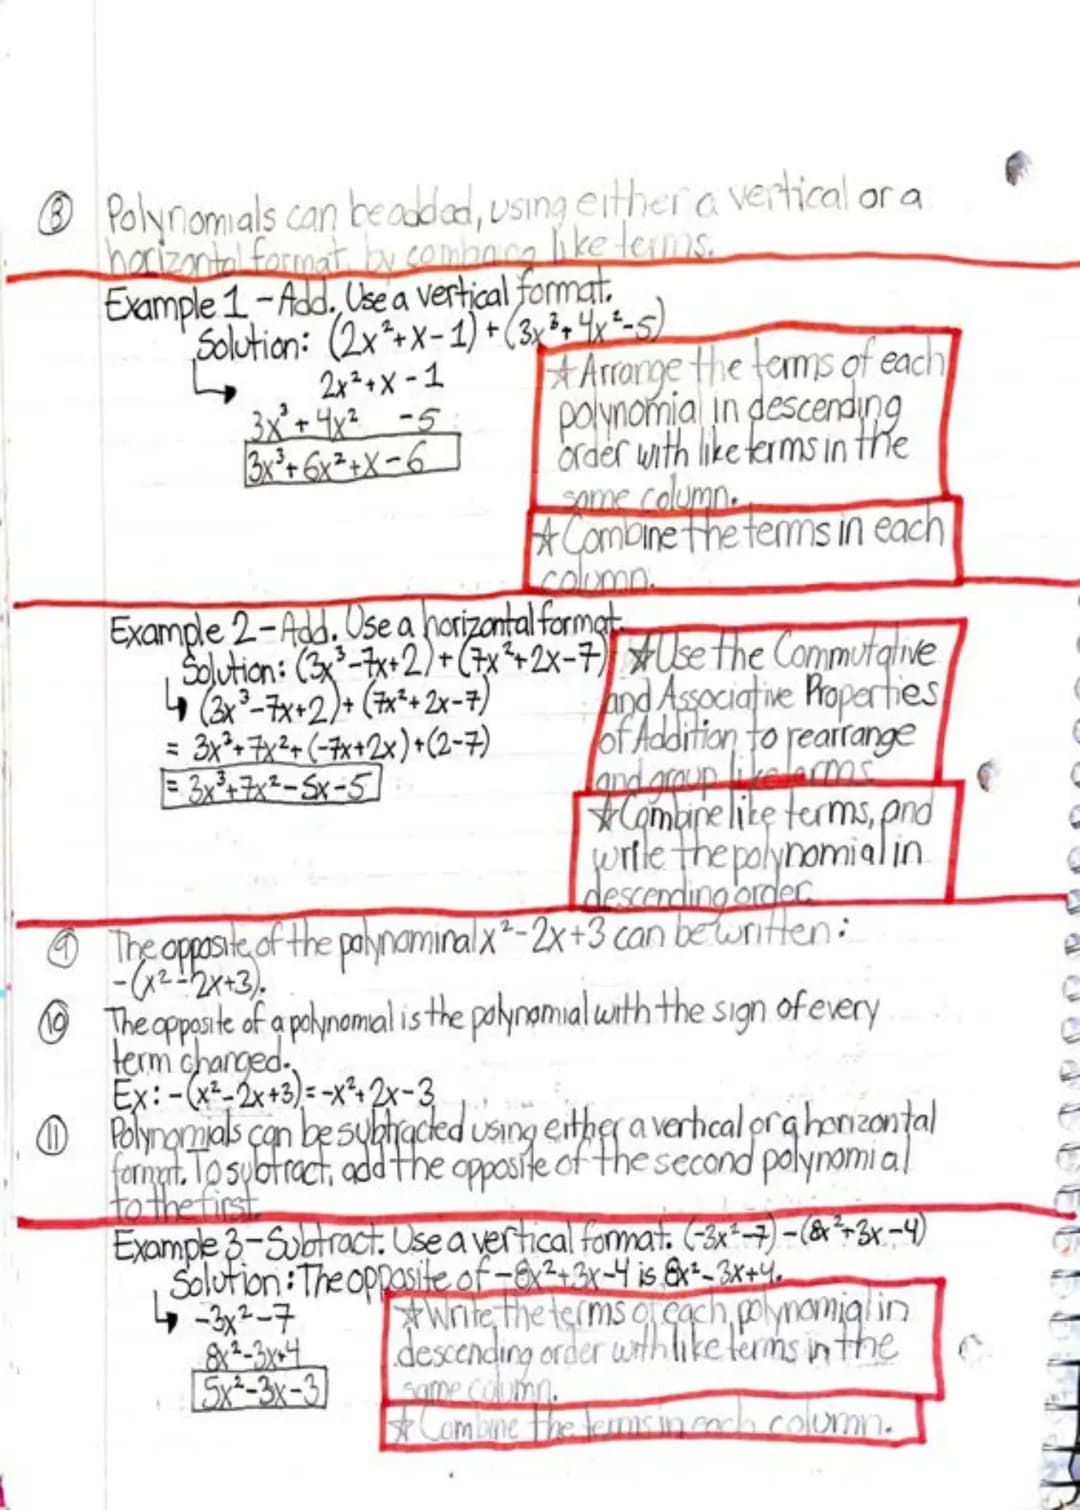 ⑧ Polynomials can be added, using either a vertical or a
horizontal format, by combaing like terms.
Example 1 - Add. Use a vertical format.
Solution: (2x²+x-1)+(3x³+4x²-5)
↳ 2x²+x-1
3x³+4x² -5
3x³+6x²+x-6
☆Arrange the terms of each
polynomial in descending
order with like terms in the
same column.
☆Combine the terms in each
column.
Example 2-Add. Use a horizontal format.
Solution: (3x³-7x+2)+(7x²+2x-7)
↳ (3x³-7x+2)+(7x²+2x-7)
= 3x³+7x²+(-7x+2x)+(2-7)
= 3x³+7x²-5x-5
☆Use the Commutative
and Associative Properties
of Addition to rearrange
and group like terms
☆Combine like terms, and
write the polynomial in
descending order.
⑨ The opposite of the polynominal x²-2x+3 can be written:
-(x²-2x+3).
⑩ The opposite of a polynomial is the polynomial with the sign of every
term changed.
Ex: -(x²-2x+3)=-x²+2x-3
⑪ Polynomials can be subtracted using either a vertical or a horizontal
format. To subtract, add the opposite of the second polynomial
to the first.
Example 3-Subtract. Use a vertical format. (-3x²-7)-(8x²+3x-4)
Solution: The opposite of -8x²+3x-4 is 8x²-3x+4.
↳ -3x²-7
8x²-3x+4
5x²-3x-3
☆Write the terms of each polynomial in
descending order with like terms in the
same column.
☆Combine the terms in each column.